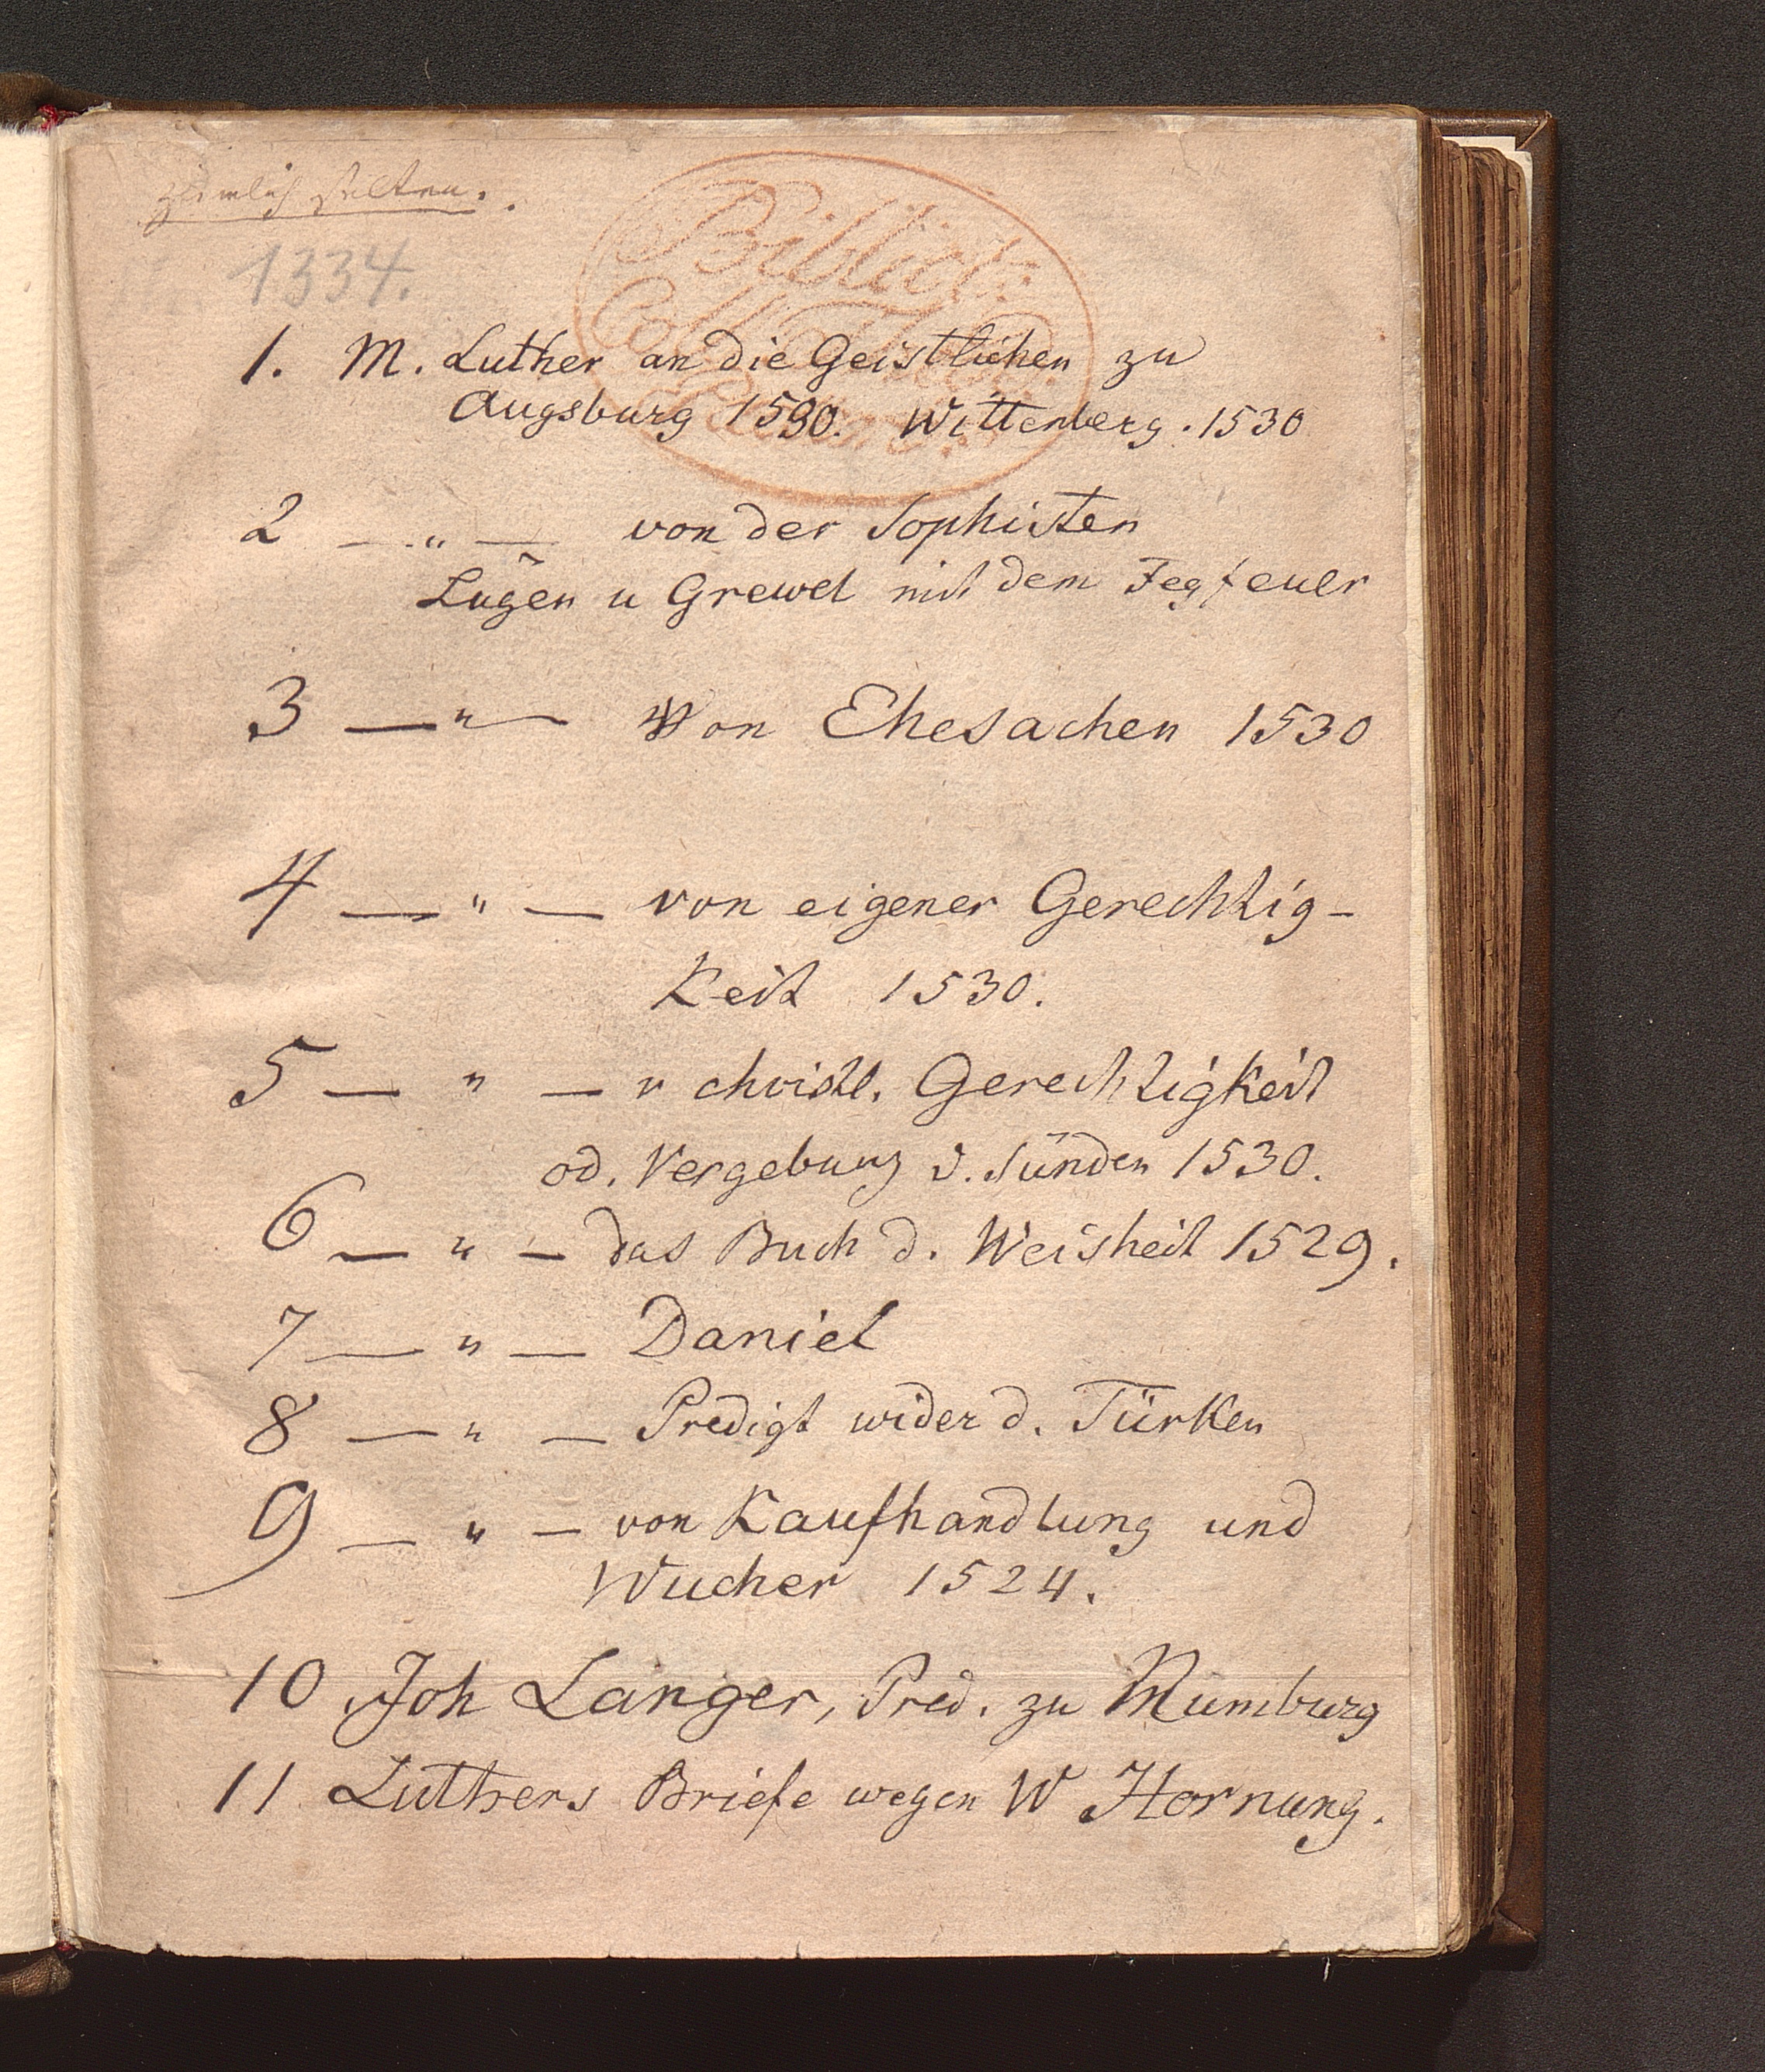 ziemlich selten.
1334.
Biblioth:
1. M. Luther an die Geistlichen zu
Augsburg 1530. Wittenberg. 1530
2 — " — von der Sophisten
Lügen u Grewel mit dem Fegfeuer
3 — " — Von Ehesachen 1530
4 — " — von eigener Gerechtig-
Keit 1530.
5 — " — v christl. Gerechtigkeit
od. Vergebung d. Sünden 1530.
6 — " — das Buch d. Weisheit 1529.
7 — " — Daniel
8 — " — Predigt wider d. Türken
9 — " — von Kaufhandlung und
Wucher 1524.
10 Joh Langer, Pred. zu Numburg
11 Luthers Briefe wegen W Hornung.